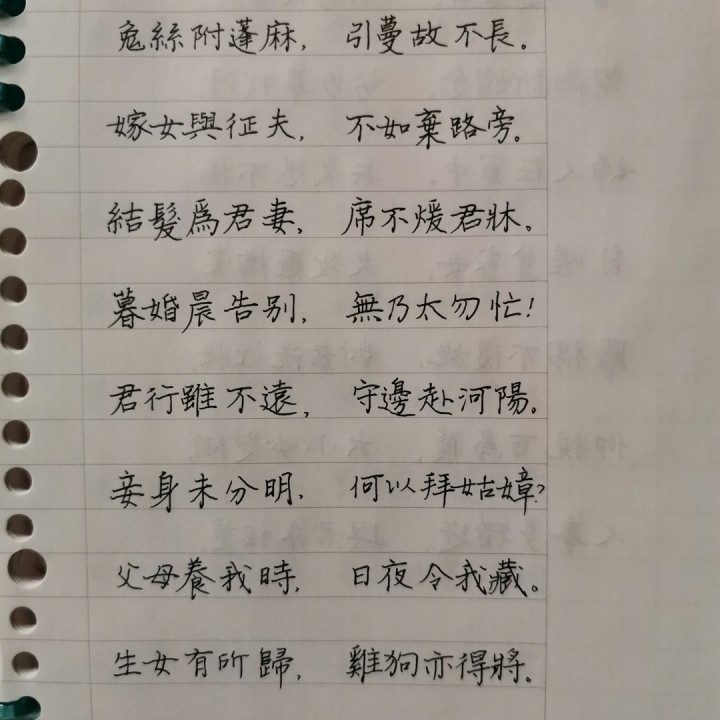 兔絲附蓬麻，引蔓故不長。
嫁女與征夫，不如棄路旁。
結髮爲君妻，席不煖君牀。
暮婚晨告別，無乃太勿忙！
君行雖不遠，守邊赴河陽。
妾身未分明，何以拜姑嫜？
父母養我時，日夜令我藏。
生女有所歸，雞狗亦得將。